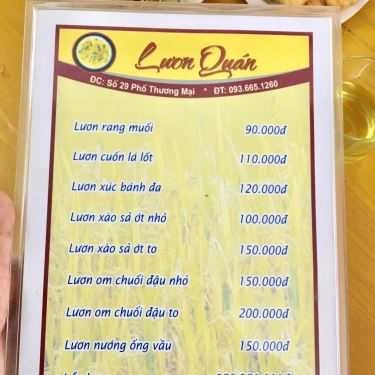 Lươn Quán
ĐC: Số 29 Phố Thương Mại * ĐT: 093.665.1260
Lươn rang muối 90.000đ
Lươn cuốn lá lốt 110.000đ
Lươn xúc bánh đa 120.000đ
Lươn xào sả ớt nhỏ 100.000đ
Lươn xào sả ớt to 150.000đ
Lươn om chuối đậu nhỏ 150.000đ
Lươn om chuối đậu to 200.000đ
Lươn nướng ống vầu 150.000đ